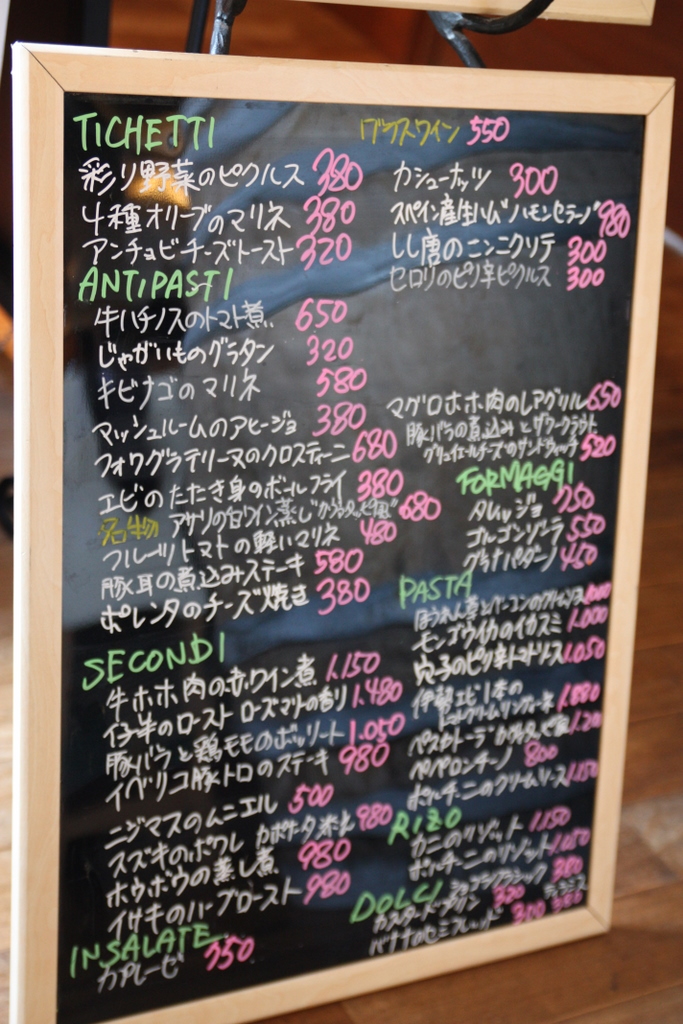 TICHETTI
彩り野菜のピクルス 380
4種オリーブのマリネ 380
アンチョビチーズトースト 320
グラスワイン 550
カシューナッツ 300
スペイン産生ハム"ハモンセラーノ" 980
しし唐のニンニクソテ 300
セロリのピリ辛ピクルス 300
ANTIPASTI
牛ハチノスのトマト煮 650
じゃがいものグラタン 320
キビナゴのマリネ 580
マッシュルームのアヒージョ 380
フォワグラテリーヌのクロスティーニ 680
エビのたたき身のボールフライ 380
名物 アサリの白ワイン蒸し 680
フルーツトマトの軽いマリネ 480
豚耳の煮込みステーキ 580
ポレンタのチーズ焼き 380
マグロホホ肉のレアグリル 650
豚バラの煮込みとザワークラウト
グリュイエールチーズのサンドウィッチ 520
FORMAGGI
タレッジョ 750
ゴルゴンゾーラ 550
グラナパダーノ 450
PASTA
ほうれん草とベーコンのクリームソース
モンゴウイカのイカスミ 1.000
穴子のピリ辛トマトソース 1.050
伊勢エビ1本の
トマトクリームリングイーネ 1.880
ペスカトーラ
ペペロンチーノ 800
ポルチーニのクリームソース 1.150
SECONDI
牛ホホ肉の赤ワイン煮 1.150
仔羊のロースト ローズマリーの香り 1.480
豚バラと鶏モモのボッリート 1.050
イベリコ豚トロのステーキ 980
ニジマスのムニエル 500
スズキのポワレ カポナータ添え 980
ホウボウの蒸し煮 980
イサキのハーブロースト 980
RIZO
カニのリゾット 1.150
ポルチーニのリゾット
DOLCI
カスタードプリン 320
バナナのセミフレッド
INSALATE
カプレーゼ 750